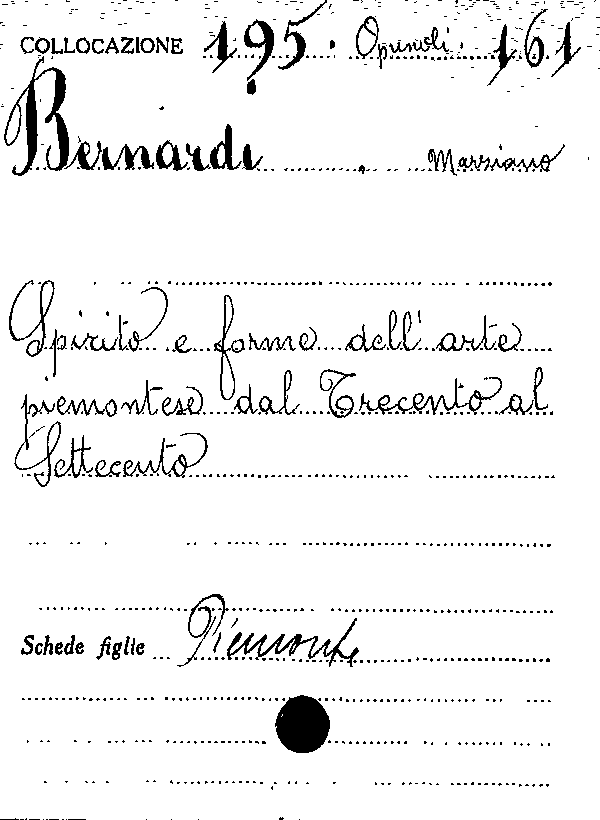 COLLOCAZIONE 195. Opuscoli. 161
Bernardi, Marziano
Spirito e forme dell'arte
piemontese dal Trecento al
Settecento
Schede figlie Piemonte